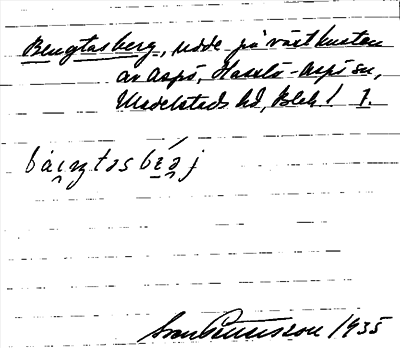 Bengtasberg, udde på västkusten
av Aspö, Hasslö-Aspö sn,
Medelstads hd, Blek! 1.
1935